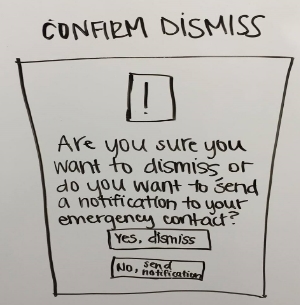 CONFIRM DISMISS
!
Are you sure you
want to dismiss or
do you want to send
a notification to your
emergency contact?
Yes, dismiss
No, send
notification